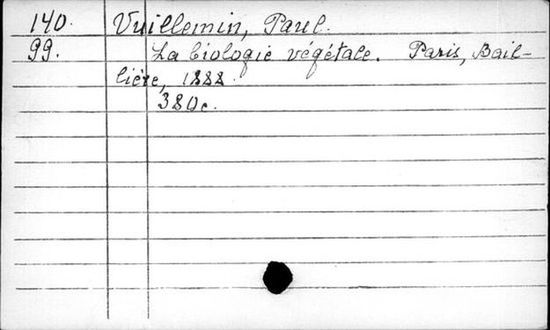 140. Vuillemin, Paul.
99. La biologie végétale. Paris, Bail-
lière, 1888.
380c.